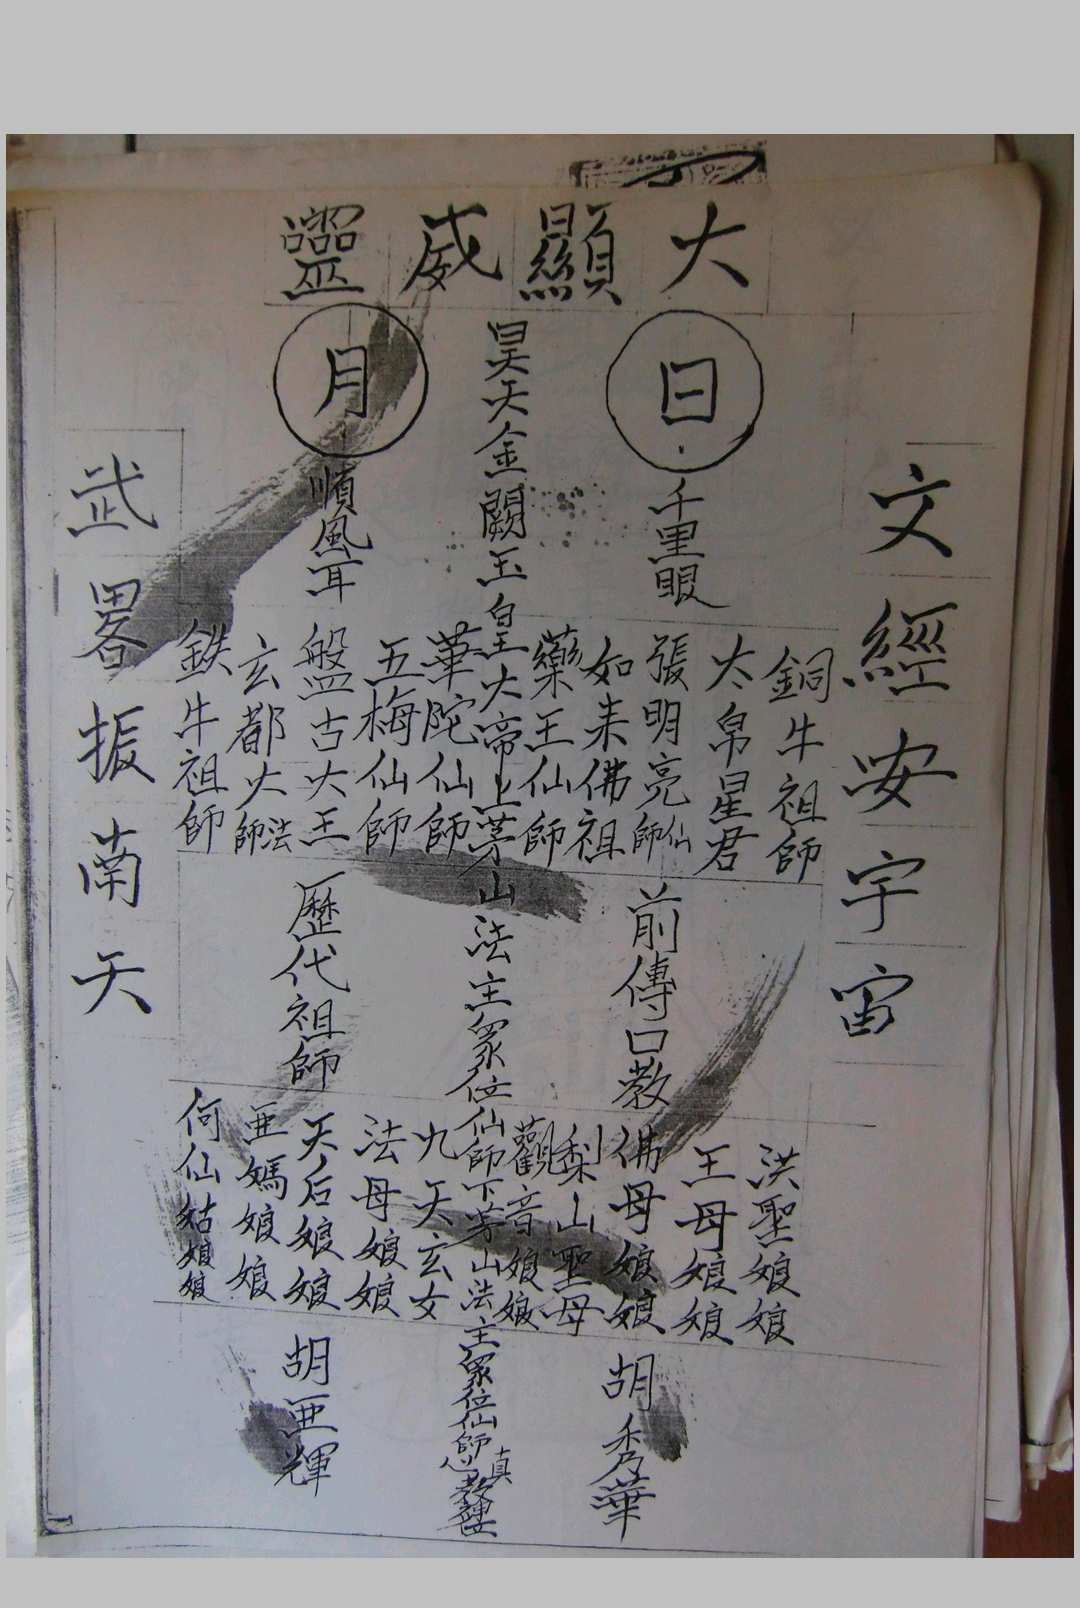 大顯威靈
文經安宇宙
日
月
千里眼
昊天金闕玉皇大帝上茅山法主眾位仙師下茅山法主眾位仙師心真教
順風耳
銅牛祖師
太帛星君
張明亮仙師
如来佛祖
藥王仙師
華陀仙師
五梅仙師
盤古大王
玄都大法師
鉄牛祖師
前傳口教
歷代祖師
洪聖娘娘
王母娘娘
佛母娘娘
梨山聖母
觀音娘娘
九天玄女
法母娘娘
天后娘娘
亜媽娘娘
何仙姑娘娘
胡秀華
胡亜輝
武畧振南天